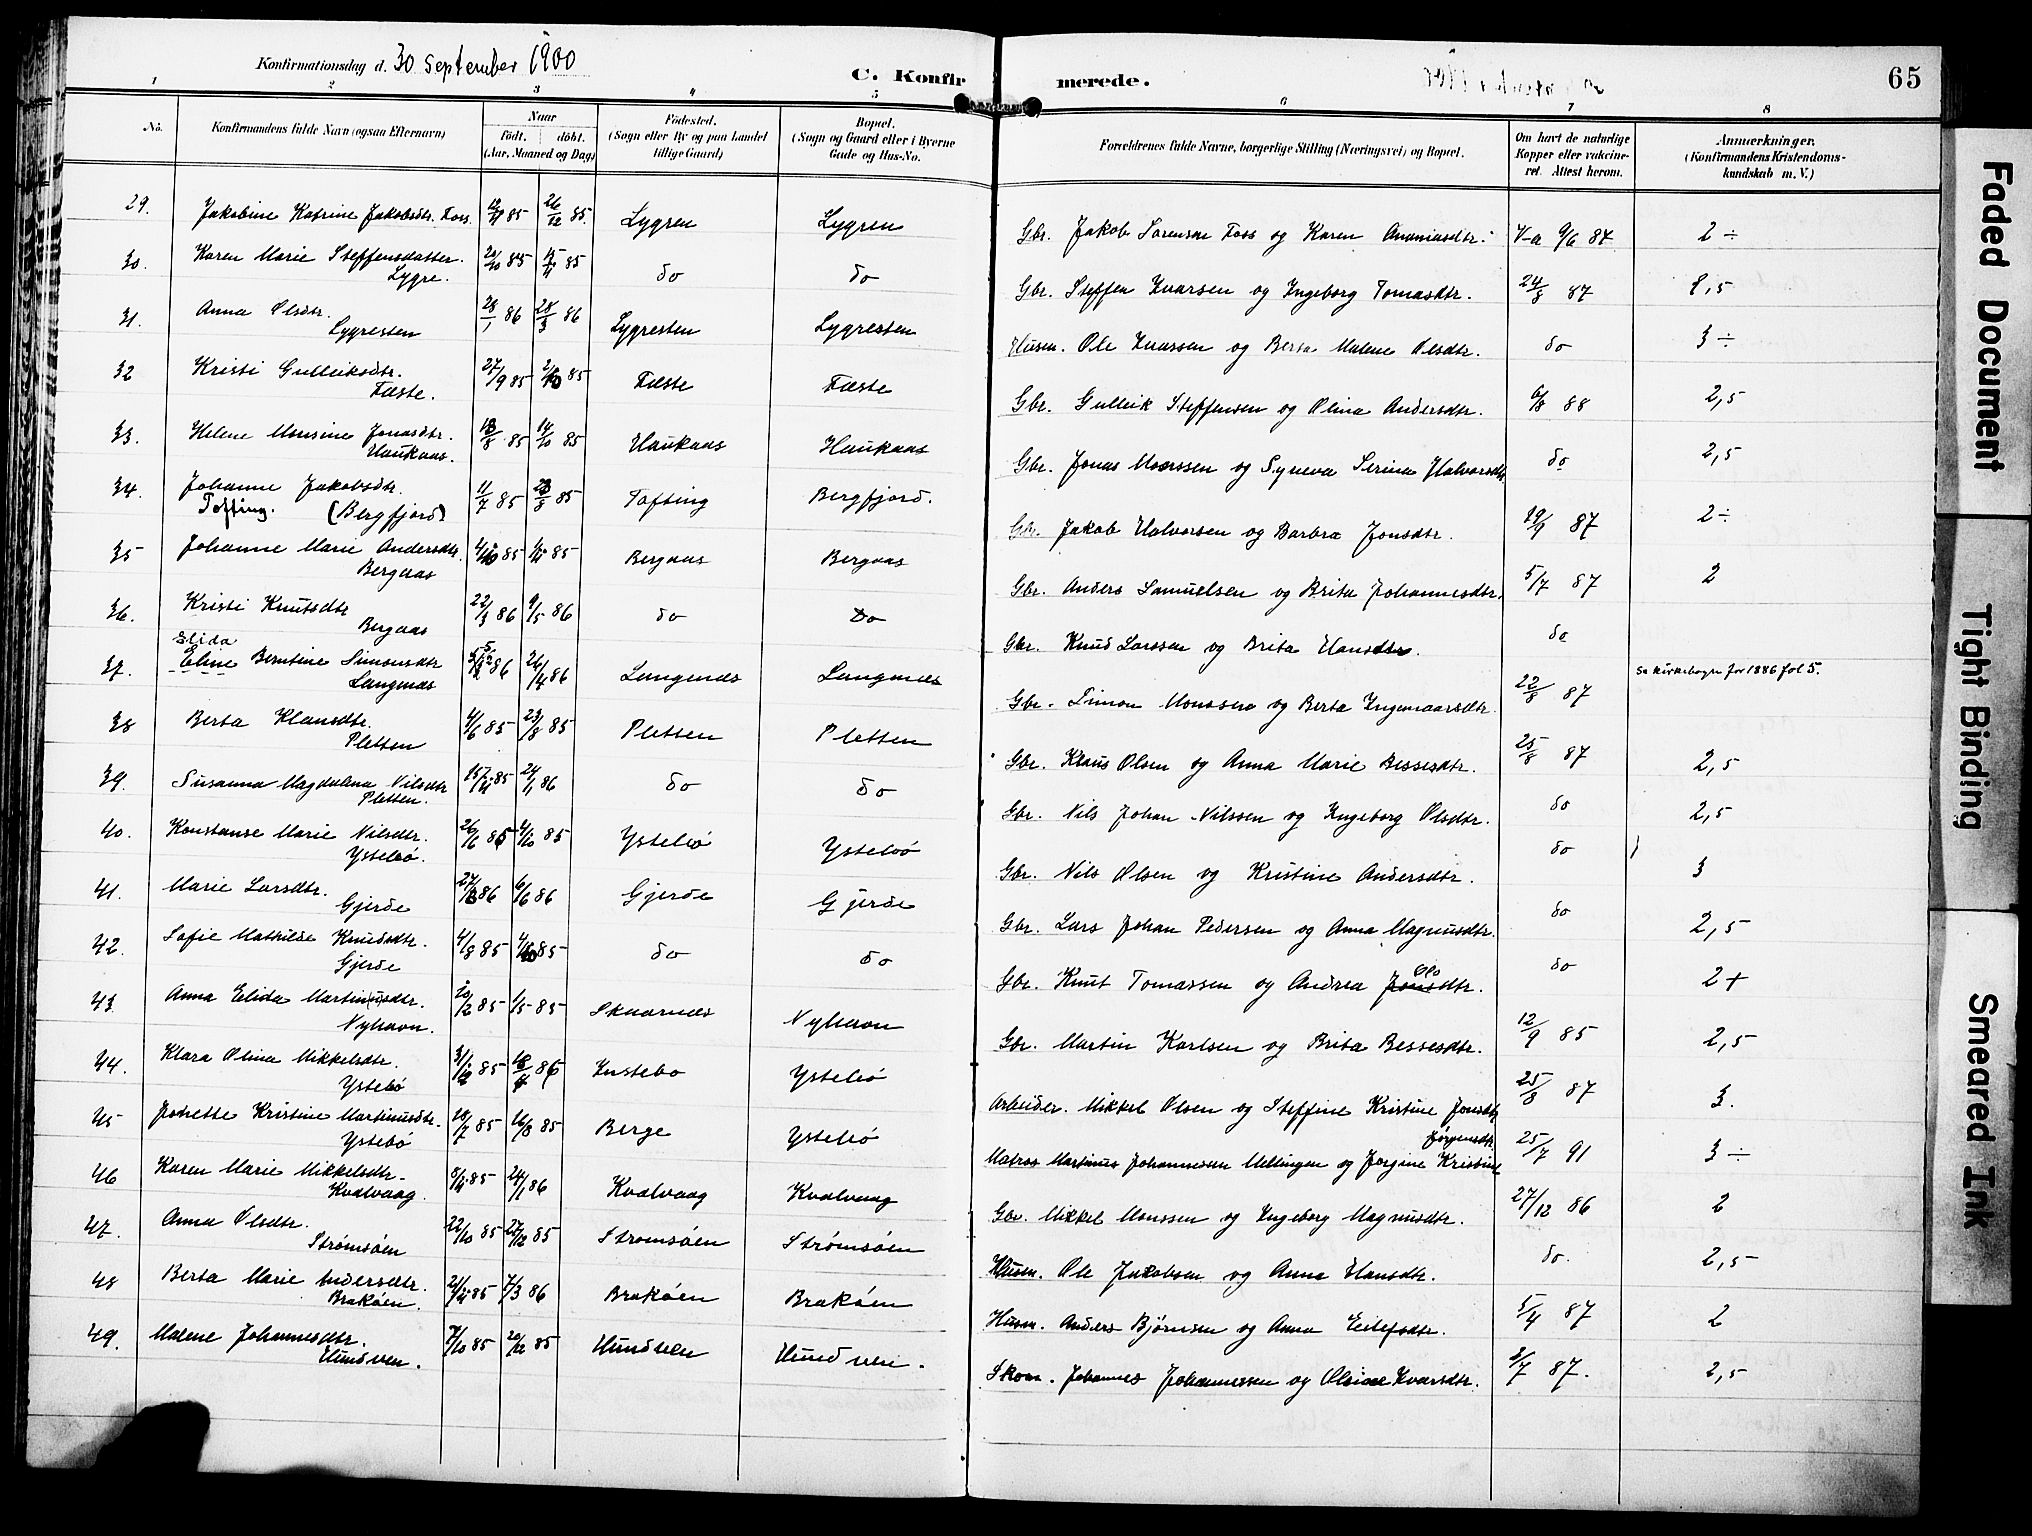 Konfirmationsdag d. 30 September 1900
C. Konfirmerede.
65
1 2 3 4 5 6 7 8
No.
Konfirmandens fulde Navn (ogsaa Efternavn)
Naar
født. døbt.
(Aar, Maaned og Dag)
Fødested.
(Sogn eller By og paa Landet
tillige Gaard)
Bopæl.
(Sogn og Gaard eller i Byerne
Gade og Hus-No.
Forældrenes fulde Navne, borgerlige Stilling (Næringsvei) og Bopæl.
Om havt de naturlige
Kopper eller vakcine-
ret. Attest herom.
Anmærkninger.
(Konfirmandens Kristendoms-
kundskab m. V.)
29. Jakobine Katrine Jakobsdtr. Foss 85 26/12 85. Lygren Lygren Gbr. Jakob Sørensen Foss og Karen Ananiasdtr. V-a 9/6 87 2 ÷
30. Karen Marie Steffensdatter Lygre. 20/10 85 15/11 85 do do Gbr. Steffen Ivarsen og Ingeborg Tomasdtr. 24/8 87 2,5
31. Anna Olsdtr. Lygresten 28/1 86 28/3 86 Lygresten Lygresten Husm. Ole Ivarsen og Berta Malene Olsdtr. do 3 ÷
32 Kristi Gulleiksdtr. Fæste. 27/9 85 2/10 85 Fæste Fæste Gbr. Gulleik Steffensen og Olina Andersdtr. 6/8 88 2,5
33. Helene Monsine Jonasdtr. Haukaas. 18/8 85 14/10 85 Haukaas Haukaas Gbr. Jonas Monssen og Syneva Serina Halvorsdtr do 2,5
34. Johanne Jakobsdtr. Tofting. (Bergfjord) 11/7 85 23/8 85 Tofting Bergfjord. Gbr. Jakob Halvorsen og Barbra Jonsdtr. 19/9 87 2 ÷
35 Johanne Marie Andersdtr. Bergaas 4/10 85 1/11 85 Bergaas Bergaas Gbr. Anders Samuelsen og Brita Johannesdtr. 5/7 87 2
36. Kristi Knutsdtr Bergaas 22/3 86 9/5 86 do Do Gbr. Knud Larssen og Brita Hansdtr. do
37. Elida
Eline Berntine Simonsdtr Langenæs 86 26/4 86 Langenæs Langenæs Gbr. Simon Monssen og Berta Ingemaarsdtr. 22/8 87 se kirkebogen for 1886 fol 5.
38 Berta Klausdtr. Pletten 4/6 85 23/8 85 Pletten Pletten Gbr. Klaus Olsen og Anna Marie Bessesdtr. 25/8 87 2,5
39. Susanna Magdalena Nilsdtr Pletten. 15/11 85 24/1 86 do do Gbr. Nils Johan Nilssen og Ingeborg Olsdtr. do 2,5
40. Konstanse Marie Nilsdtr. Ystebø. 26/6 85 4/10 85 Ystebø Ystebø Gbr. Nils Olsen og Kristine Andersdtr. do 3
41. Marie Larsdtr. Gjerde 27/3 86 6/6 86 Gjerde Gjerde Gbr. Lars Johan Pedersen og Anna Magnusdtr. do 2,5
42. Sofie Mathilde Knudsdtr. Gjerde 4/8 85 4/10 85 do do Gbr. Knut Tomassen og Andrea Jonsdtr. Ols do 2 +
43. Anna Elida Martinusdtr. Nyhavn. 20/2 85 1/5 85 Skaarnæs Nyhavn Gbr. Martin Karlsen og Brita Bessesdtr. 12/9 85 2,5
44. Klara Olina Mikkelsdtr. Ystebø 3/12 85 18/4 86 Instebø Ystebø Arbeider. Mikkel Olsen og Steffine Kristine Jonsdtr 25/8 87 3.
45 Johette Kristine Martinusdtr. Ystebø 18/7 85 16/8 85 Berge Ystebø Matros Martinus Johannessen Mellingen og Jørgine Kristine Jørgensdtr 25/7 91 3 ÷
46 Karen Marie Mikkelsdtr. Kvalvaag. 8/11 85 24/1 86 Kvalvaag Kvalvaag Gbr. Mikkel Monssen og Ingeborg Magnusdtr. 27/12 86 2
47. Anna Olsdtr. Strømsøen 22/10 85 27/12 85 Strømsøen Strømsøen Husm. Ole Jakobsen og Anna Hansdtr. do. 2,5
48 Berta Marie Andersdtr. Brakøen. 21/11 85 7/3 86 Brakøen Brakøen Husm. Anders Bjørnsen og Anna Eilefsdtr. 5/4 87 2
49. Malene Johannesdtr. Hundven. 7/10 85 20/12 85 Hundven Hundven. Skom. Johannes Johannessen og Olina Ivarsdtr. 2/7 87. 2,5
Faded Document
Tight Binding
Smeared Ink